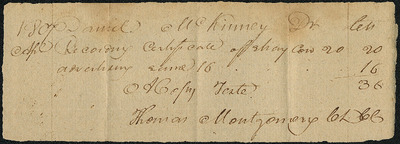 1807 Daniel McKinney Dr Cts
Recording Certificate of Stray Cow 20 20
advertising same 16 16
36
A Copy Teste
Thomas Montgomery Cl